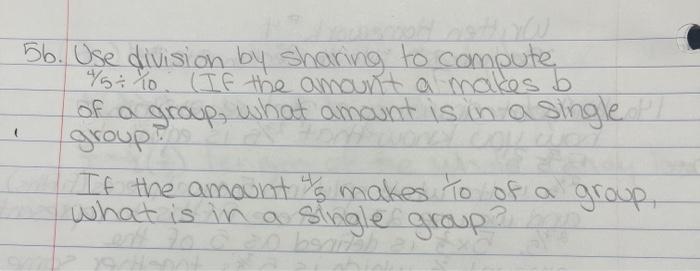 5b. Use division by sharing to compute
4/5 ÷ 1/10. (If the amount a makes b
of a group, what amount is in a single
group?
If the amount 4/5 makes 1/10 of a group,
what is in a single group?